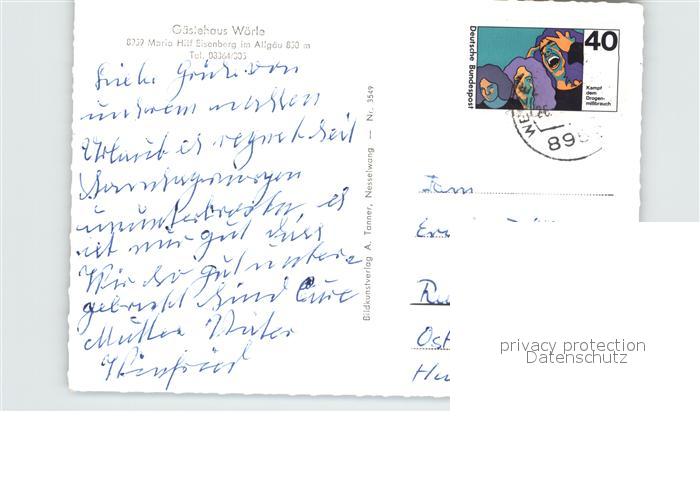 Gästehaus Wörle
8959 Maria Hilf Eisenberg im Allgäu 850 m
Tel. 08364/305
Liebe Grüße von
unserem nassen
Urlaub es regnet seit
Sonntagmorgen
ununterbrochen es
ist nur gut dass
Wir so gut unter=
gebracht sind Eure
Mutter Vater
Winfried
Bildkunstverlag A. Tanner, Nesselwang — Nr. 3549
Deutsche Bundespost
40
Kampf
dem
Drogen-
mißbrauch
895
Fam
Ost
privacy protection
Datenschutz